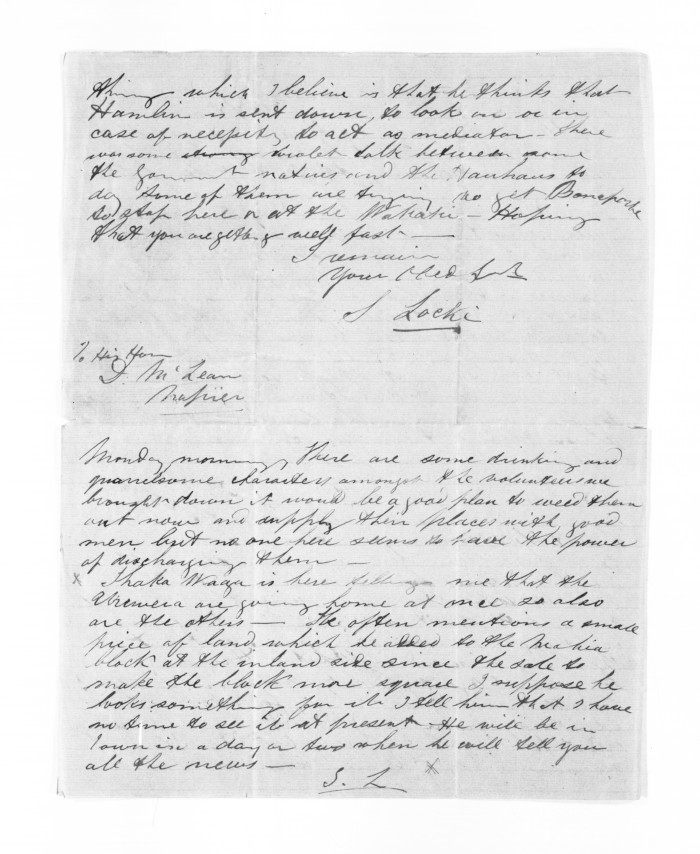 thing which I believe is that he thinks that
Hamlin is sent down, to look on or in
case of necessity to act as mediator - There
was some strong violet talk between some
the Goverment natives and the Hauhaus to
day some of them are trying to get
to stop here or at the Wakaki - Hoping
that you are getting well fast -
I remain
Your Obed Sert
S Locke
To His Hon
D. McLean
Napier
Monday morning, There are some drinking and
quarrelsome characters amongst the volunteers we
brought down it would be a good plan to weed them
out now and supply their places with good
men but no one here seems to have the power
of discharging them -
x Ihaka Waqa is here telling me that the
Urewera are going home at once so also
are the others - He often mentions a small
piece of land, which he added to the Mahia
block at the inland side since the sale to
make the block more square I suppose he
looks something for it. I tell him that I have
no time to see it at present. He will be in
Town in a day or two when he will tell you
all the news -
x
S. L